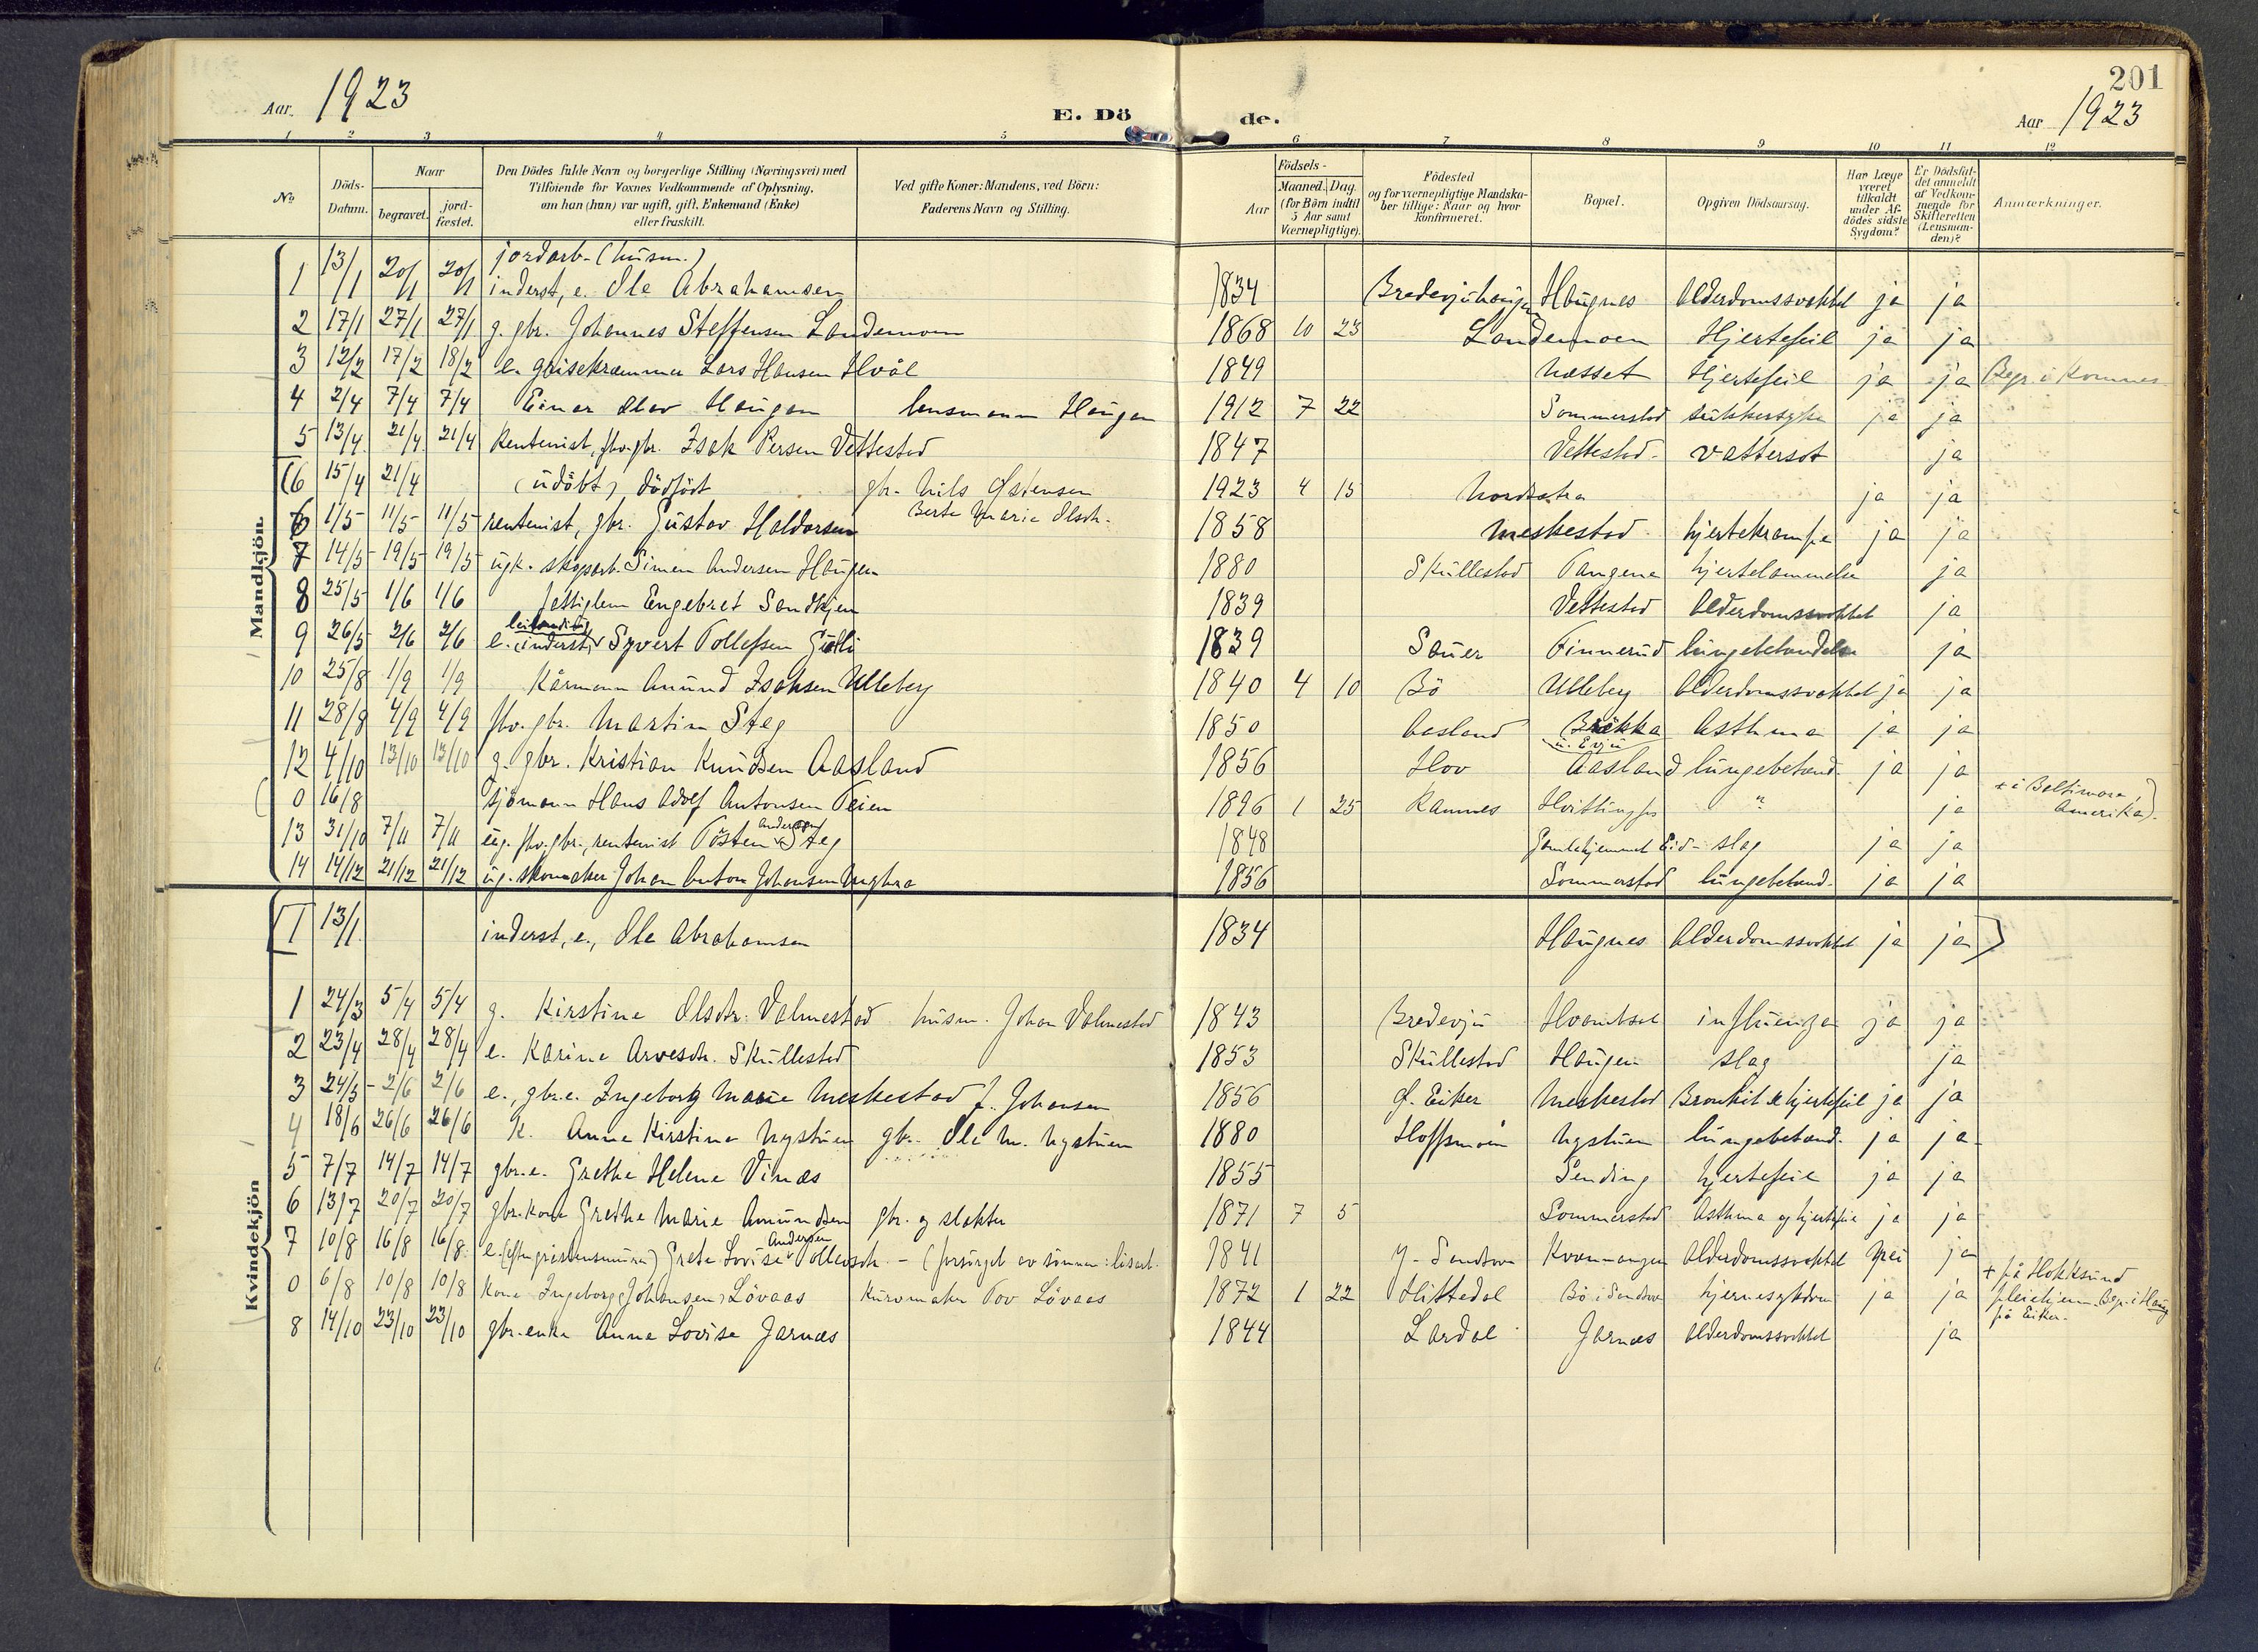 201
Aar 1923
E. Dö
de.
Aar 1923
1 2 3 4 5 6 7 8 9 10 11 12
No.
Döds-Datum.
Naar
begravet.
jord-fæstet.
Den Dödes fulde Navn og borgerlige Stilling (Næringsvei) med
Tilföiende for Voxnes Vedkommende af Oplysning,
om han (hun) var ugift, gift, Enkemand (Enke)
eller fraskilt.
Ved gifte Koner: Mandens, ved Börn:
Faderens Navn og Stilling.
Födsels-
Aar
Maaned. Dag.
(for Börn indtil
5 Aar samt
Værnepligtige).
Födested
og for værnepligtige Mandska-
ber tillige: Naar og hvor
konfirmeret.
Bopæl.
Opgiven Dödsaarsag.
Har Læge
været
tilkaldt
under Af-
dödes sidste
Sygdom?
Er Dödsfal-
det anmeldt
af Vedkom-
mende for
Skifteretten
(Lensman-
den)?
Anmærkninger.
Mandkjön.
jordarb. (husm.)
1 13/1 20/1 20/1 inderst, e. Ole Abrahamsen 1834 Bredevjuhaugen Haugnes Alderdomssvakhet ja ja
2 17/1 27/1 27/1 g. gbr. Johannes Steffensen Landemoen 1868 10 23 Landemoen Hjertefeil ja ja
3 12/2 17/2 18/2 e. grisekræmmer Lars Hansen Hvål 1849 Næsset Hjertefeil ja ja Begr. i Komnes
4 2/4 7/4 7/4 Einar Olav Haugan lensmann Haugan 1912 7 22 Sommerstad sukkersyke ja ja
5 13/4 21/4 21/4 Rentenist, fhv. gbr. Isak Persen Vettestad 1847 Vettestad vattersot ja
(6 15/4 21/4 (udöbt) dödfödt gbr. Nils Østensen 1923 4 15 Nordsætra ja ja
Berte Marie Olsdr.
6 1/5 11/5 11/5 rentenist, gbr. Gustav Haldorsen 1858 Meskestad hjertekrampe ja ja
7 14/5 19/5 19/5 ugk. skogsarb. Simen Andersen Haugen 1880 Skullestad Tangene hjertelammelse ja
8 25/5 1/6 1/6 fattiglem Engebret Sandkjen 1839 Vettestad Alderdomssvakhet ja
9 26/5 2/6 2/6 e. inderst Syvert Tollefsen 1839 Sauer Finnerud lungebetændelse ja
10 25/8 1/9 1/9 Kårmann Anund Isaksen Ulleberg 1840 4 10 Bö Ulleberg Alderdomssvakhet ja ja
11 28/8 4/9 4/9 fhv. gbr. Martin Steg 1850 Aasland Brækka Asthma ja ja
u. Evju
12 4/10 13/10 13/10 g. gbr. Kristian Knudsen Aasland 1856 Hov Aasland lungebetænd. ja ja
(0 16/8 sjömann Hans Adolf Antonsen Teien 1896 1 25 Ramnes Hvittingfos " ja + i Baltimore, Amerika).
13 31/10 7/11 7/11 ug. fhv. gbr., rentenist Tösten Andersen Steg 1848 Gamlehjemmet Eid- slag ja ja
14 14/12 21/12 21/12 ug. skomaker Johan Anton Johansen 1856 Sommerstad lungebetænd. ja ja
[1 13/1 inderst, e., Ole Abrahamsen 1834 Haugnes Alderdomssvakhet ja ja ]
Kvindekjön
1 24/3 5/4 5/4 g. Kirstine Olsdtr. Valmestad husm. Johan Valmestad 1843 Bredevju Hvamtsæt influenza ja ja
2 23/4 28/4 28/4 e. Karine Arvesdtr. Skullestad 1853 Skullestad Haugen slag ja
3 24/5 2/6 2/6 e., gbr.e. Ingeborg Marie Meskestad f. Johansen 1856 Ø. Eiker Meskestad Bronkit & hjertefeil ja ja
4 18/6 26/6 26/6 K. Anne Kirstine Nystuen gbr. Ole M. Nystuen 1880 Hoffsmoen Nystuen lungebetænd. ja ja
5 7/7 14/7 14/7 gbr.e. Grethe Helene Vinæs 1855 Sending hjertefeil ja ja
6 13/7 20/7 20/7 gbr.kone Grethe Marie Amundsen gbr. og slakter 1871 7 5 Sommerstad Asthma og hjertefeil ja ja
7 10/8 16/8 16/8 e. Grete Lovise Andersen Tollevsdtr. - (forsörget av sönnen: lösarb. 1841 Y. Sandsvær Alderdomssvakhet nei ja
0 6/8 10/8 10/8 Kone Ingeborg (Johansen) Lövaas Kurvmaker Tov Lövaas 1872 1 22 Hittedal Bö i Sandsvær hjernesykdom ja ja + på Hokksund
pleiehjem. Begr. i Haug
på Eiker.
8 14/10 23/10 23/10 gbr.enke Anne Lovise Jarnæs 1844 Lardal Jarnæs Alderdomssvakhet ja